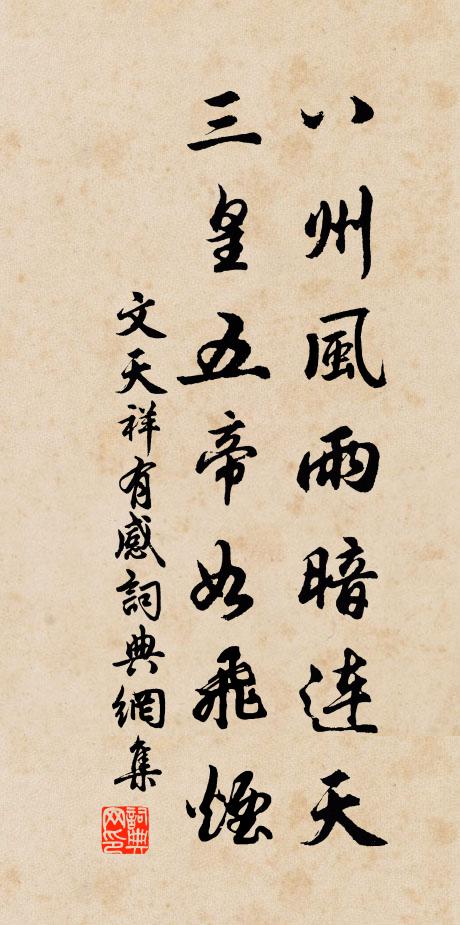 八州風雨暗連天
三皇五帝如飛煙
文天祥有感詞典網集
詞典
网印